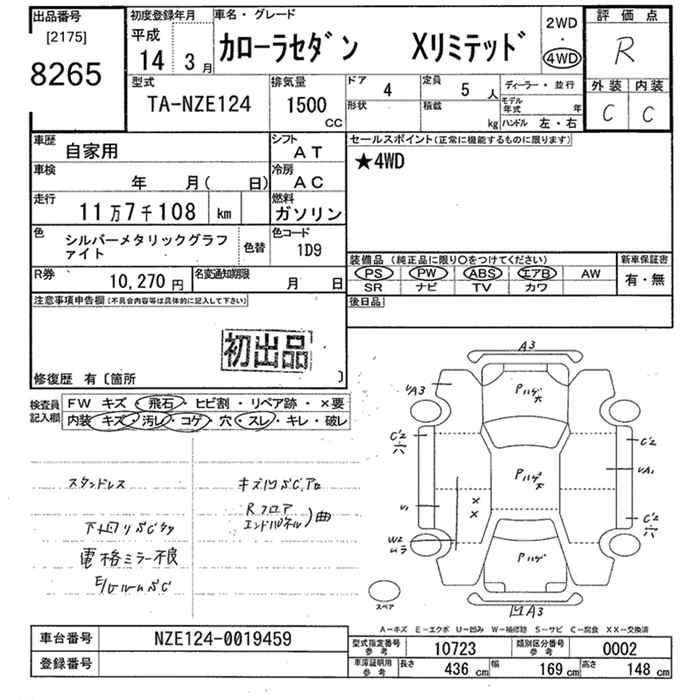 出品番号
[2175]
8265
初度登録年月
平成
14 3月
車名・グレード
カローラセダン Xリミテッド
2WD
・
4WD
評価点
R
外装 内装
C C
型式
TA-NZE124
排気量
1500
CC
ドア
4
形状
定員
5 人
積載
kg
ディーラー・並行
モデル年式 年
ハンドル 左・右
車歴
自家用
シフト
AT
車検
年 月( 日)
冷房
AC
走行
11万7千108 km
燃料
ガソリン
色
シルバーメタリックグラファイト
色替
色コード
1D9
R券
10,270円
名変通知期限
月 日
セールスポイント(正常に機能するものに限ります)
★4WD
装備品 (純正品に限り○をつけてください)
PS PW ABS エアB AW
SR ナビ TV カワ
新車保証書
有・無
後日品
注意事項申告欄(不具合内容等は具体的に記入して下さい)
初出品
修復歴 有〔箇所 〕
検査員記入欄
FW キズ・飛石・ヒビ割・リペア跡・×要
内装 キズ・汚レ・コゲ・穴・スレ・キレ・破レ
スタンドレス
キズ凹サビ,アロ
Rフロア
エンドパネル)曲
下回りサビケ
電格ミラー不良
E/Gルームサビ
A3
Pハゲ大
UA3
C2
穴
C2
Pハゲ大
UA1
××
U1
W2
ムラ
C2
穴
Pハゲ
スペア
凹A3
A-キズ E-エクボ U-凹み W-補修跡 S-サビ C-腐食 XX-交換済
車台番号
NZE124-0019459
登録番号
型式指定番号 参考
10723
類別区分番号 参考
0002
車庫証明用 参考
長さ 436 cm
幅 169 cm
高さ 148 cm